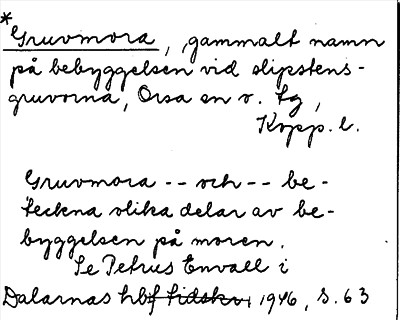 *Gruvmora, gammalt namn
på bebyggelsen vid slipstens-
gruvorna, Orsa sn o. tg,
Kopp. l.
Gruvmora -- och -- be-
teckna olika delar av be-
byggelsen på moren.
Se Petrus Envall i
Dalarnas hbf tidskr, 1946, s. 63